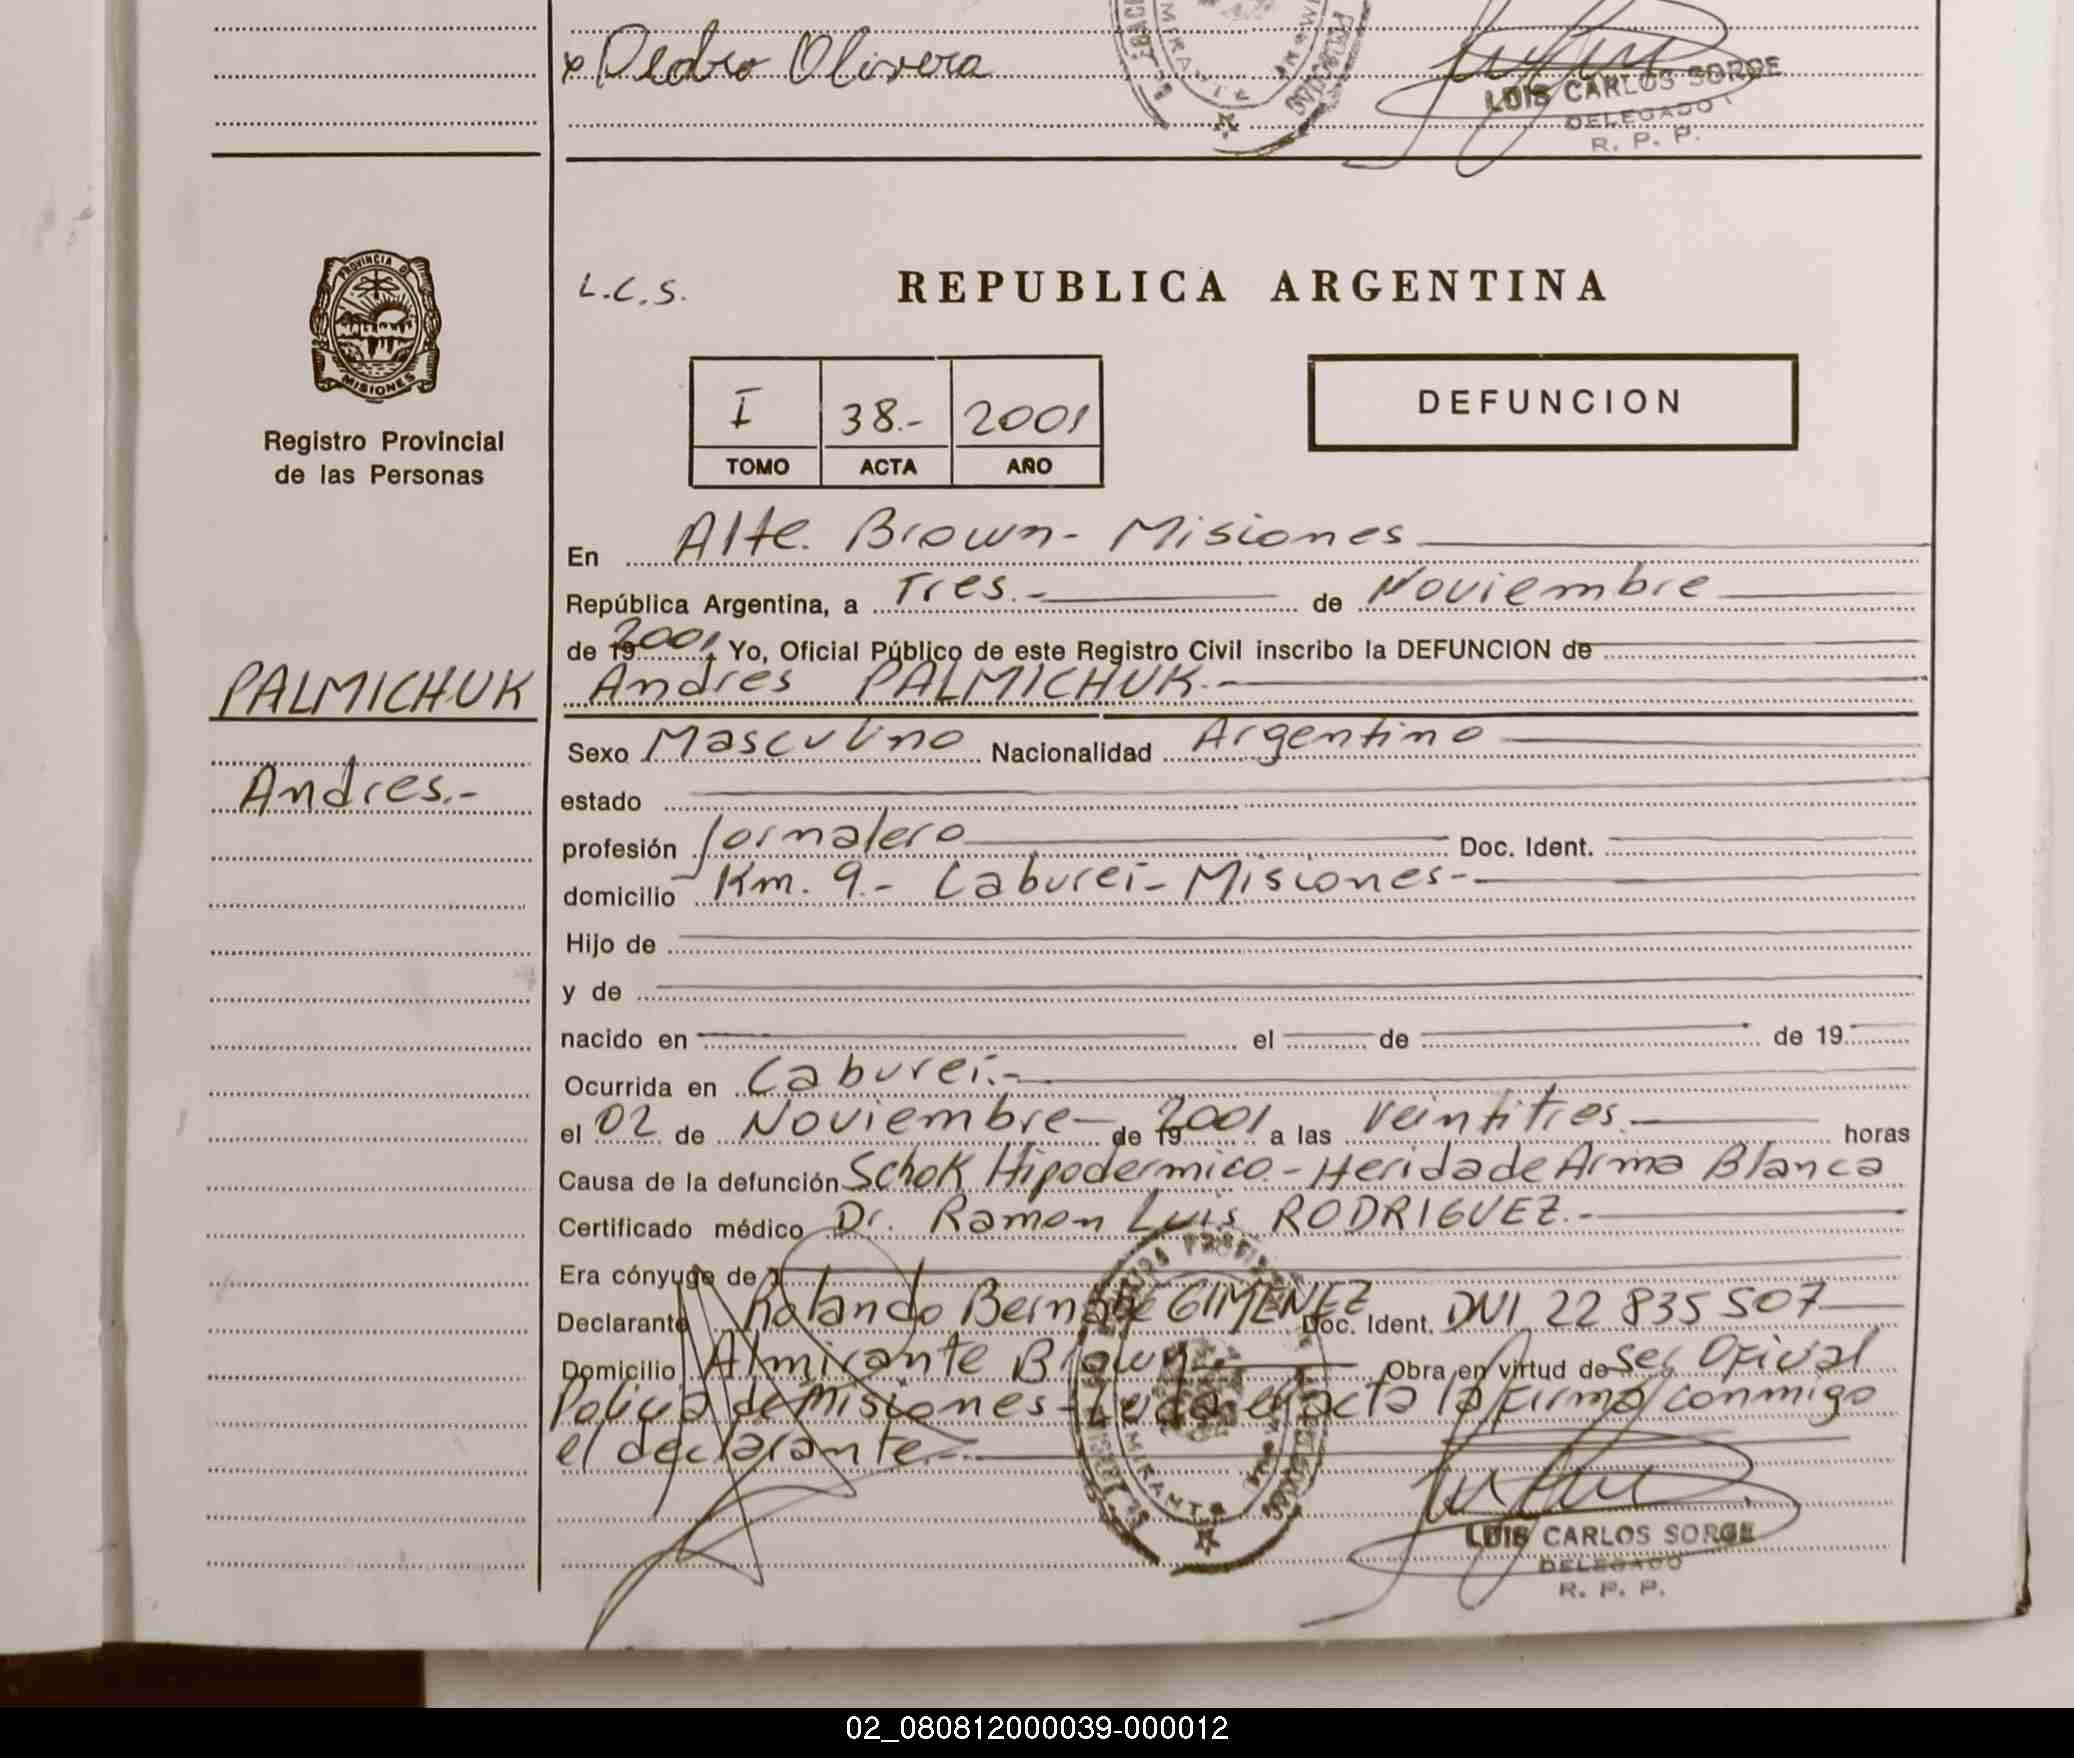 x Pedro Olivera
LUIS CARLOS SORGE
DELEGADO
R. P. P.
PROVINCIA D
MISIONES
Registro Provincial
de las Personas
L.C.S.
REPUBLICA ARGENTINA
I 38.- 2001
TOMO ACTA AÑO
DEFUNCION
En Alte. Brown- Misiones
República Argentina, a Tres.- de Noviembre
de 19 2001, Yo, Oficial Público de este Registro Civil inscribo la DEFUNCION de
PALMICHUK
Andres PALMICHUK.-
Sexo Masculino Nacionalidad Argentino
Andres.-
estado
profesión Jornalero Doc. Ident.
domicilio Km. 9.- Caburei- Misiones-
Hijo de
y de
nacido en el de de 19
Ocurrida en Caburei.-
el 02 de Noviembre de 19 2001 a las Veintitres. horas
Causa de la defunción Schok Hipodermico.- Herida de Arma Blanca
Certificado médico Dr. Ramon Luis RODRIGUEZ.-
Era cónyuge de
Declarante Rolando Bernabe GIMENEZ Doc. Ident. DNI 22 835 507
Domicilio Almirante Brown. Obra en virtud de ser Oficial
Policia de Misiones- Leida el acta la firma conmigo
el declarante.-
MIRANTE
LUIS CARLOS SORGE
DELEGADO
R. P. P.
02_080812000039-000012